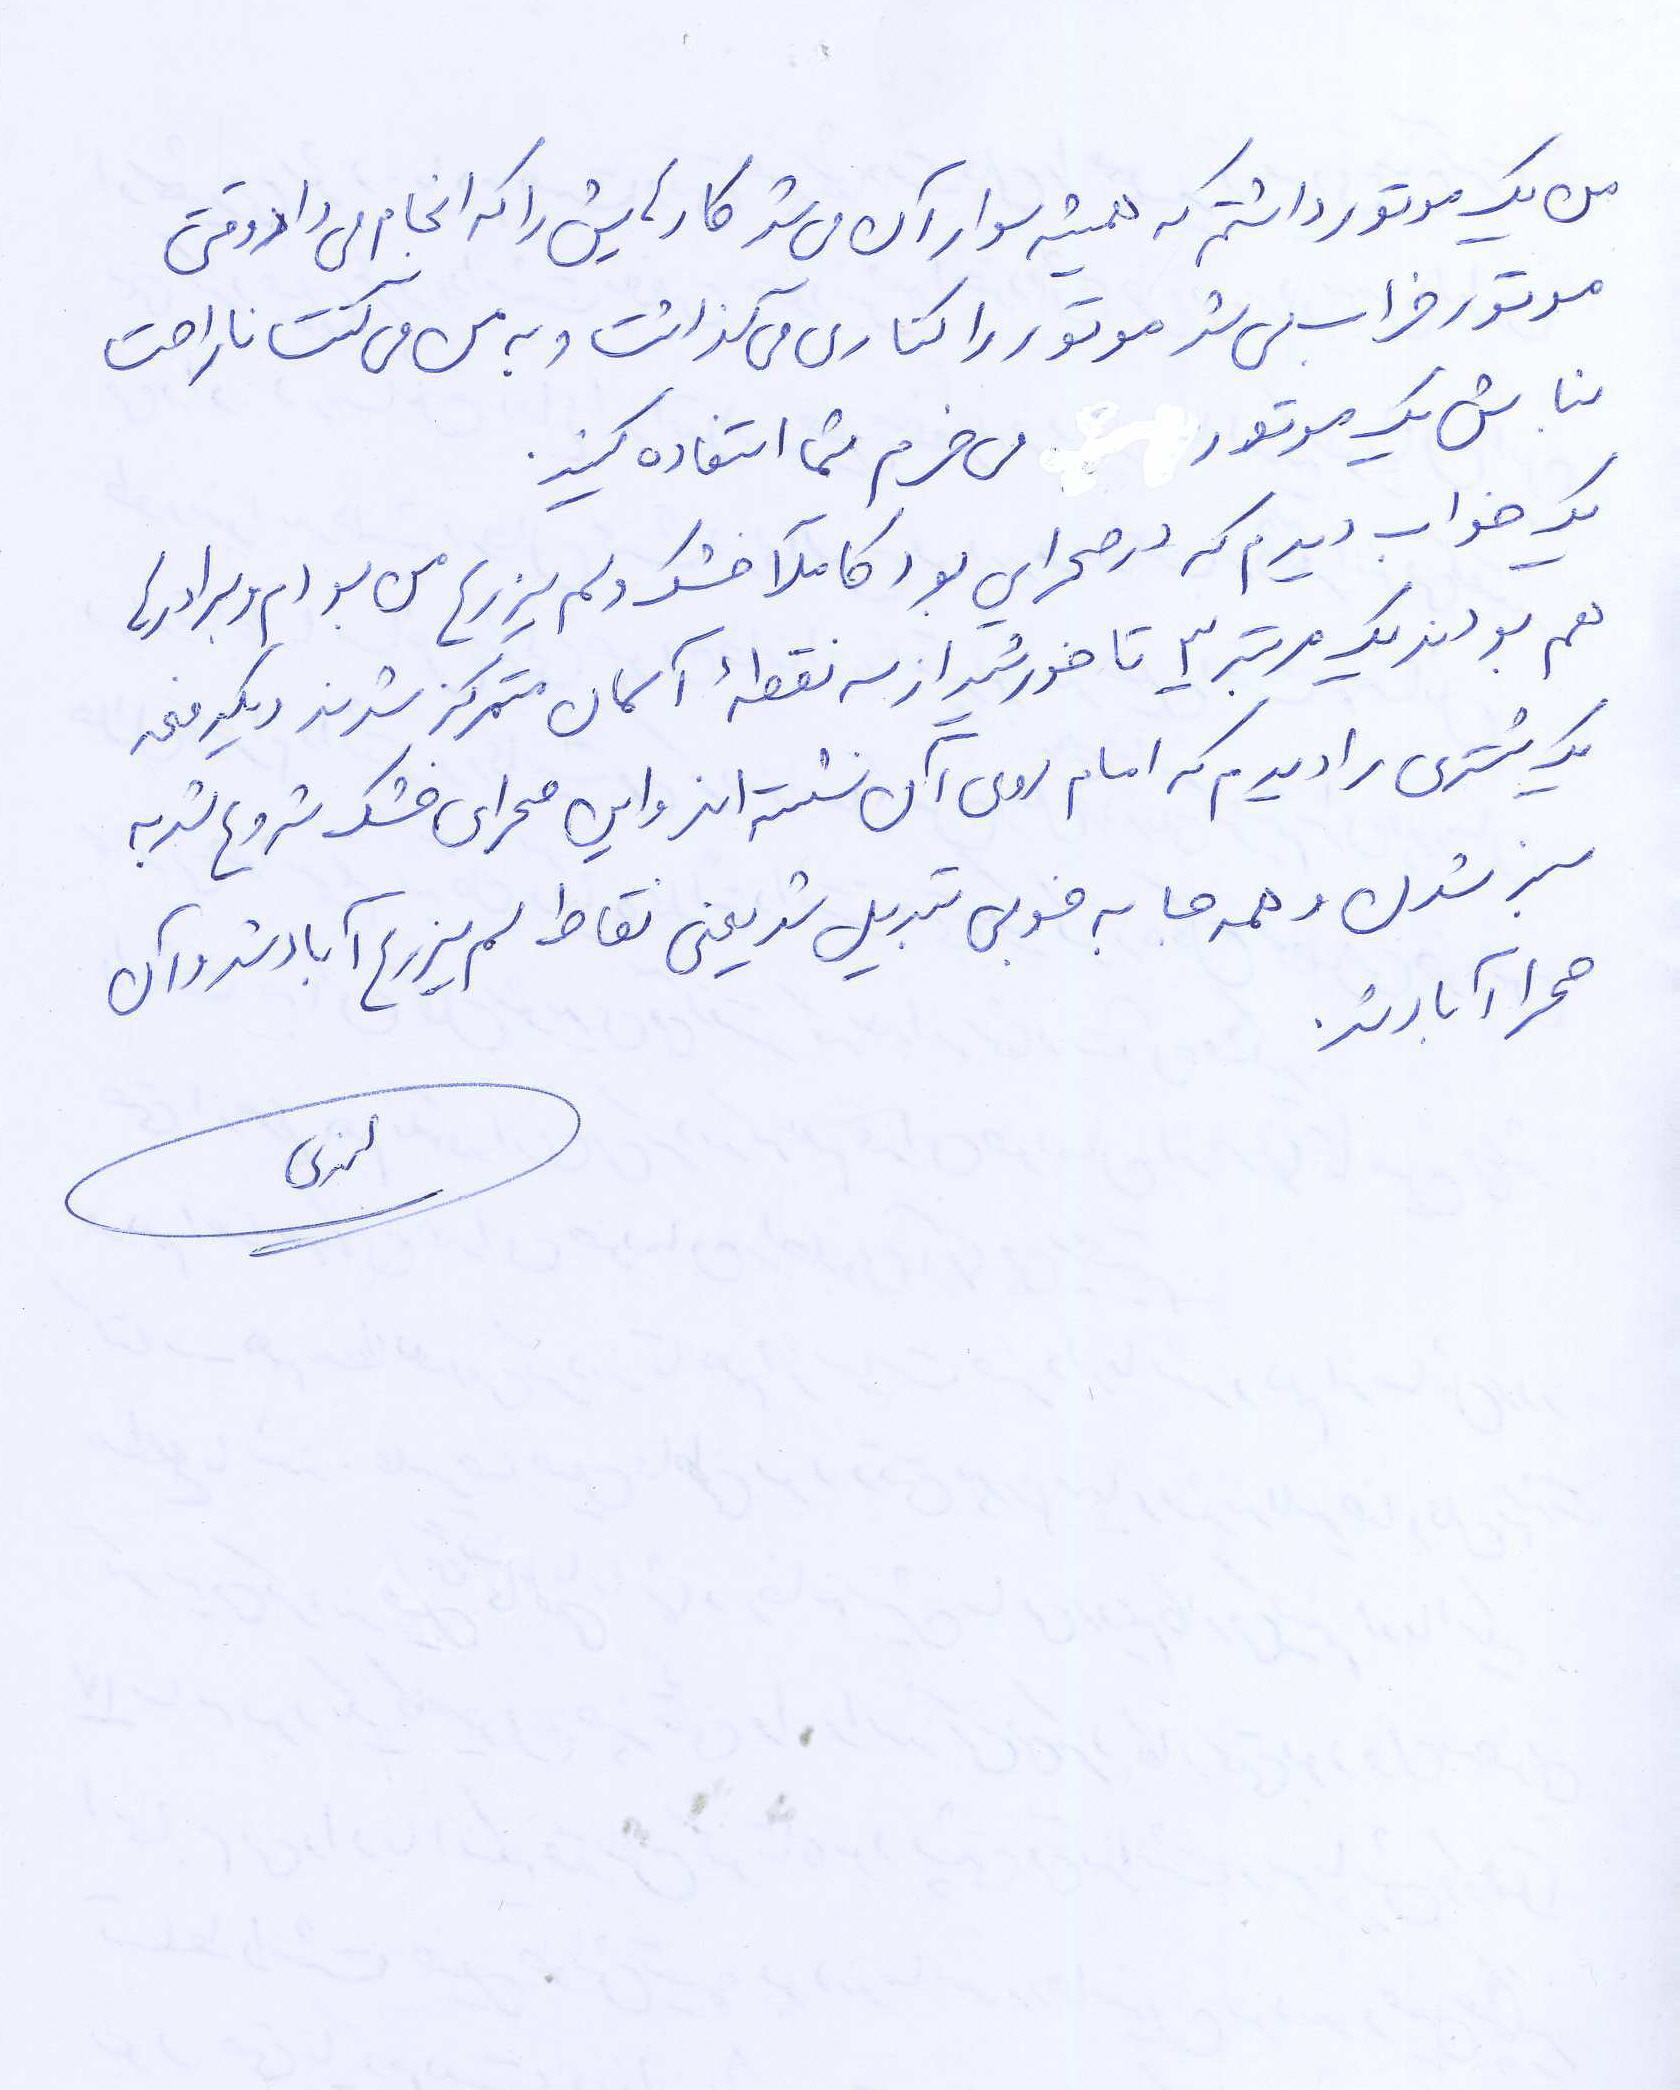 من یک موتور داشتم که همیشه سوار آن می شد کارهایش را که انجام می داد وقتی
موتور خراب می شد موتور را کناری می گذاشت و به من می گفت ناراحت
نباش یک موتور می خرم شما استفاده کنید.
یک خواب دیدم که در صحرایی بود کاملاً خشک و لم یزرع من بودم و برادرها
هم بودند یک مرتبه ۳ تا خورشید از سه نقطه آسمان متمرکز شدند دیگر دفعه
یک شتری را دیدم که امام روی آن نشسته اند و این صحرای خشک شروع شد به
سبز شدن و همه جا به خوبی تبدیل شد یعنی نقاط لم یزرع آباد شد و آن
صحرا آباد شد.